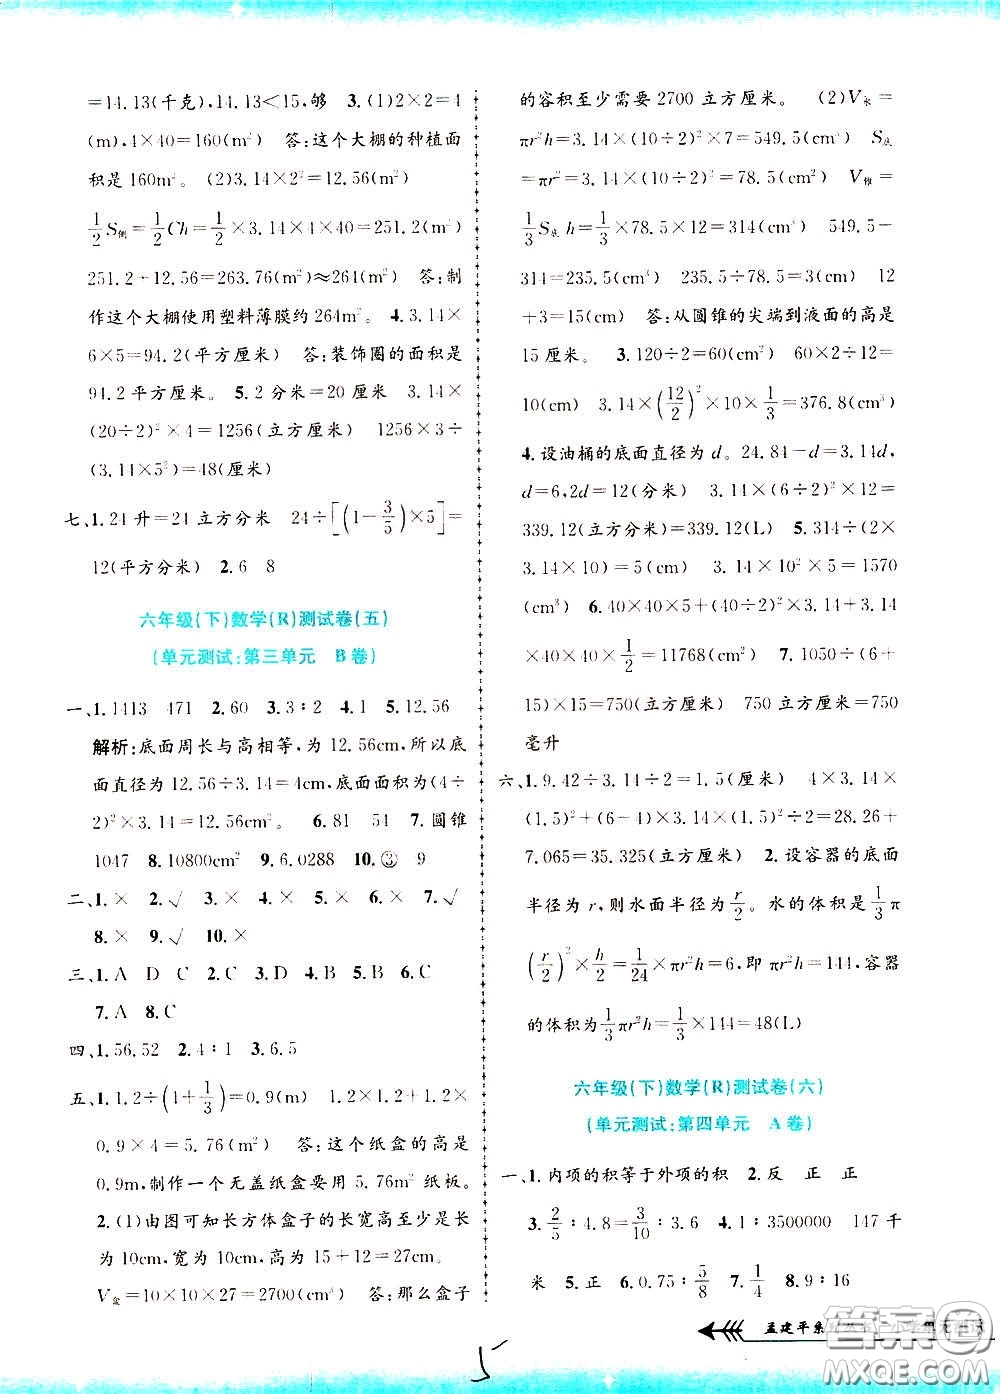 =14.13(千克),14.13<15,够　3.(1)2×2=4
(m),4×40=160(m²)　答:这个大棚的种植面
积是160m²。　(2)3.14×2²=12.56(m²)
1/2 S侧=1/2 Ch=1/2×3.14×4×40=251.2(m²)
251.2+12.56=263.76(m²)≈264(m²)　答:制
作这个大棚使用塑料薄膜约264m²。　4.3.14×
6×5=94.2(平方厘米)　答:装饰圈的面积是
94.2平方厘米。　5.2分米=20厘米　3.14×
(20÷2)²×4=1256(立方厘米)　1256×3÷
(3.14×5²)=48(厘米)
七、1.24升=24立方分米　24÷[(1-3/5)×5]=
12(平方分米)　2.6　8
六年级(下)数学(R)测试卷(五)
(单元测试:第三单元　B卷)
一、1.1413　471　2.60　3.3∶2　4.1　5.12.56
解析:底面周长与高相等,为12.56cm,所以底
面直径为12.56÷3.14=4cm。底面面积为(4÷
2)²×3.14=12.56cm²。　6.81　54　7.圆锥
1047　8.10800cm²　9.6.0288　10.③　9
二、1.×　2.√　3.×　4.×　5.×　6.×　7.√
8.×　9.√　10.×
三、1.A　D　C　2.C　3.D　4.B　5.B　6.C
7.A　8.C
四、1.56.52　2.4∶1　3.6.5
五、1.1.2÷(1+1/3)=0.9(m)　1.2×1.2+1.2×
0.9×4=5.76(m²)　答:这个纸盒的高是
0.9m,制作一个无盖纸盒要用5.76m²纸板。
2.(1)由图可知长方体盒子的长宽高至少是长
为10cm,宽为10cm,高为15+12=27cm。
V盒=10×10×27=2700(cm³)　答:那么盒子
的容积至少需要2700立方厘米。　(2)V水=
πr²h=3.14×(10÷2)²×7=549.5(cm³)　S底
=πr²=3.14×(10÷2)²=78.5(cm²)　V锥=
1/3 S底h=1/3×78.5×12=314(cm³)　549.5-
314=235.5(cm³)　235.5÷78.5=3(cm)　12
+3=15(cm)　答:从圆锥的尖端到液面的高是
15厘米。　3.120÷2=60(cm²)　60×2÷12=
10(cm)　3.14×(12/2)²×10×1/3=376.8(cm³)
4.设油桶的底面直径为d。24.84-d=3.14d,
d=6,2d=12(分米)　3.14×(6÷2)²×12=
339.12(立方分米)=339.12(L)　5.314÷(2×
3.14×10)=5(cm)　3.14×10²×5=1570
(cm³)　6.40×40×5+(40÷2)²×3.14
×40×40×1/2=11768(cm²)　7.1050÷(6+
15)×15=750(立方厘米)　750立方厘米=750
毫升
六、1.9.42÷3.14÷2=1.5(厘米)　4×3.14×
(1.5)²+(6-4)×3.14×(1.5)²÷2=28.26+
7.065=35.325(立方厘米)　2.设容器的底面
半径为r,则水面半径为r/2。水的体积是1/3π
(r/2)²×h/2=1/24×πr²h=6,即πr²h=144,容器
的体积为1/3πr²h=1/3×144=48(L)
六年级(下)数学(R)测试卷(六)
(单元测试:第四单元　A卷)
一、1.内项的积等于外项的积　2.反　正　正
3.2/5∶4.8=3/10∶3.6　4.1∶3500000　147千
米　5.正　6.0.75∶5/8　7.1/4　8.9∶16
孟建平系
答案圈
MXQE.COM
5